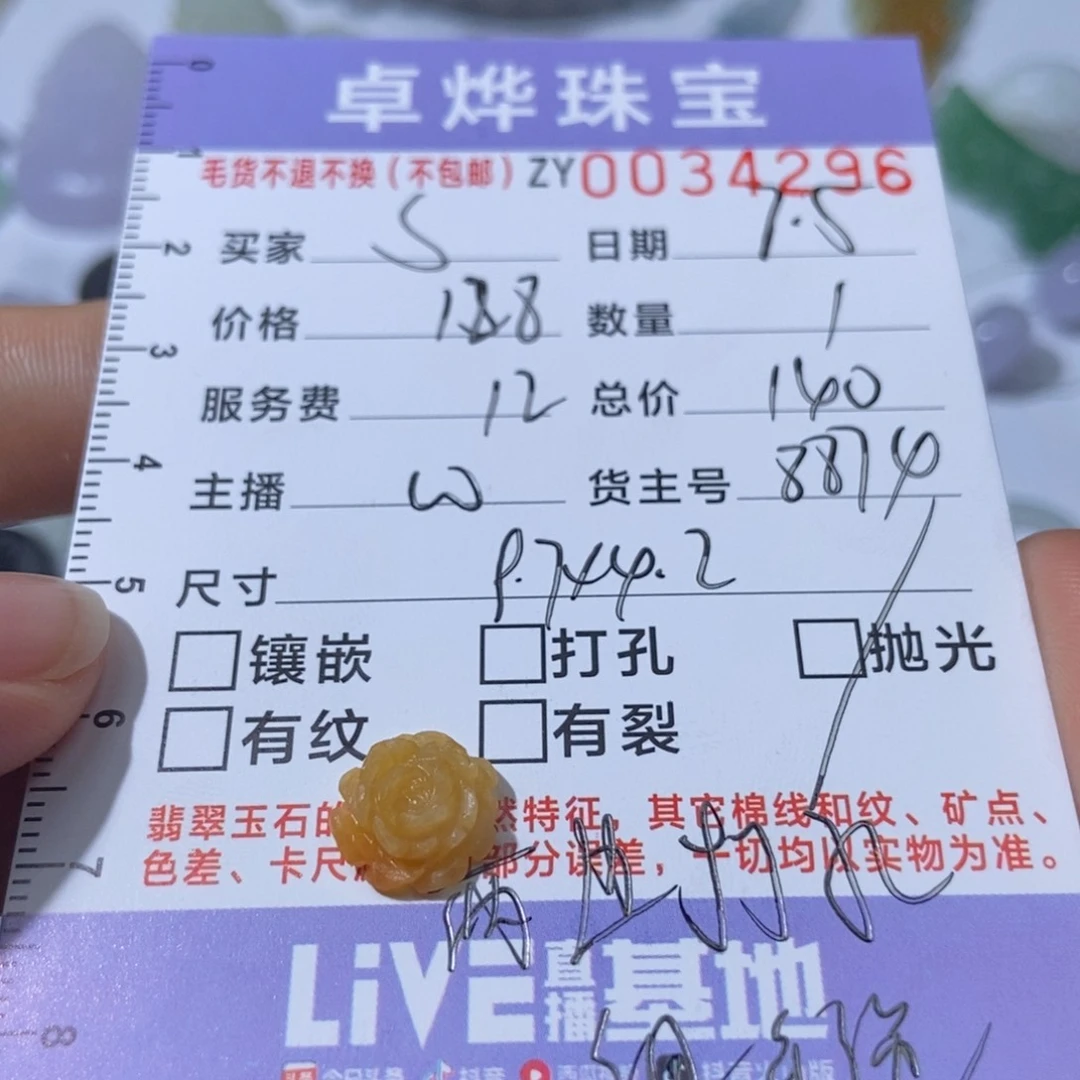 卓烨珠宝
毛货不退不换（不包邮）ZY0034296
买家 S 日期 7.5
价格 188 数量 1
服务费 12 总价 160
主播 W 货主号 8874
尺寸 9.7×4.2
镶嵌 打孔 抛光
有纹 有裂
翡翠玉石的 然特征，其它棉线和纹、矿点、
色差、卡尺 部分误差，一切均以实物为准。
两边打孔
LiVE直播基地
今日头条 抖音